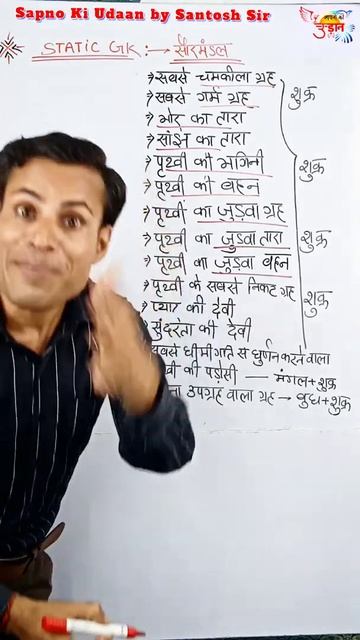 Sapno Ki Udaan by Santosh Sir
सपनों की
उड़ान
STATIC GK :→ सौरमंडल
→ सबसे चमकीला ग्रह
→ सबसे गर्म ग्रह
शुक्र
→ भोर का तारा
→ सांझ का तारा
→ पृथ्वी की भगिनी
शुक्र
→ पृथ्वी की बहन
→ पृथ्वी का जुड़वा ग्रह
→ पृथ्वी का जुड़वा तारा
शुक्र
→ पृथ्वी का जुड़वा बहन
→ पृथ्वी के सबसे निकट ग्रह
शुक्र
→ प्यार की देवी
→ सुंदरता की देवी
सबसे धीमी गति से घुर्णन करने वाला
की पड़ोसी — मंगल+शुक्र
उपग्रह वाला ग्रह → बुध+शुक्र